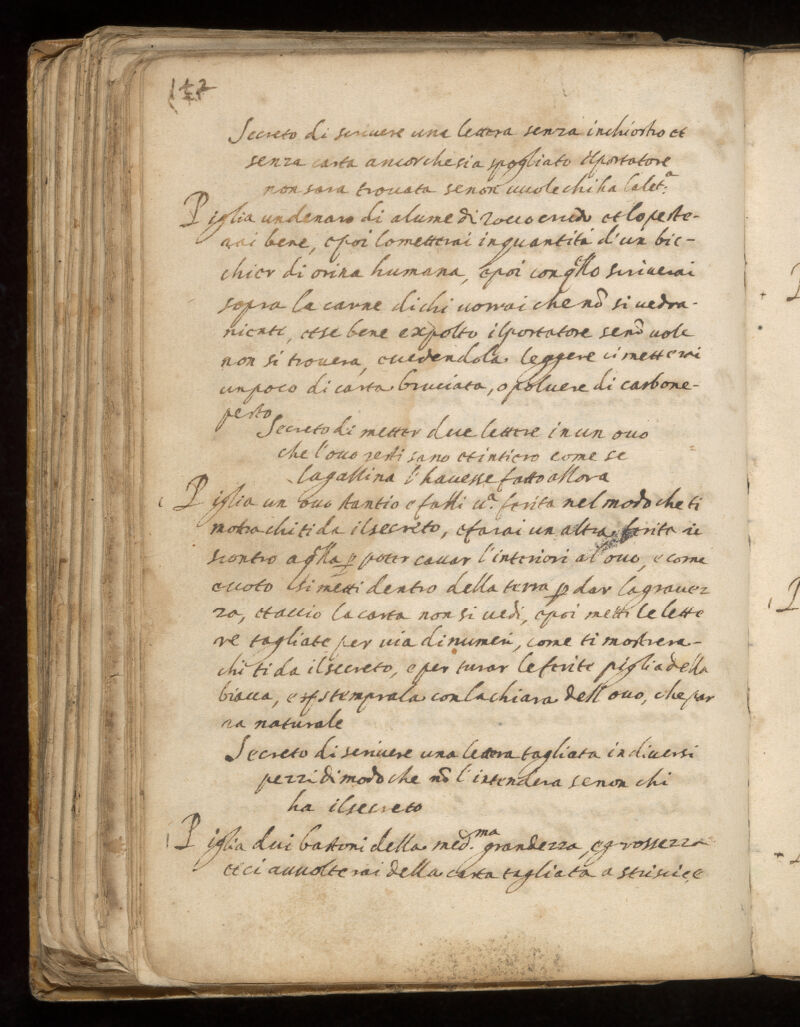 147
Secreto di scrivere una lettera senza inchiostro et
senza carta ancorche sia spogliato il portatore
non sara trovata se non vuole chi ha la let.ª
Piglia un denaro di alume di rocco crudo et lo peste-
rai bene, e poi lo metterai in quantità d'un bic-
chier di orina humana, e poi con q̃llo scriverai
sopra la carne di chi vorrai che nõ si vedra-
niente, et se bene expolto il portatore se nõ vole
non si trovera, e vedendola leggere ci metterai
un poco di carta bruciata, o polvere di carbone-
pesto
Secreto di metter due lettere in un ovo
che l'ovo resti sano et intiero come se
la gallina l'havesse fatto allora
Piglia un ovo stantio e falli u.ª ferita nel modo che ti
mostra chi ti da il secreto, e farai un altra ferita ri
scontro a q̃lla p poter cavar l'interiori al ovo, e come
e voto si metti dentro della terra p dar la gravez
za, et accio la carta non si vedi, e poi metti le lette
re tagliate per via di numeri, come ti mostrera-
chi ti da il secreto, e per turar le ferite piglia della
biacca, e stemprala con la chiara dell ovo, che par
ra naturale
Secreto di scrivere una lettera tagliata in diversi
pezzi di modo che nõ l'intendera se non chi
ha il secreto
Piglia dui bastoni della med.ma grandezza, e grossezza
et ci avvolterai della carta tagliata a striscie, e